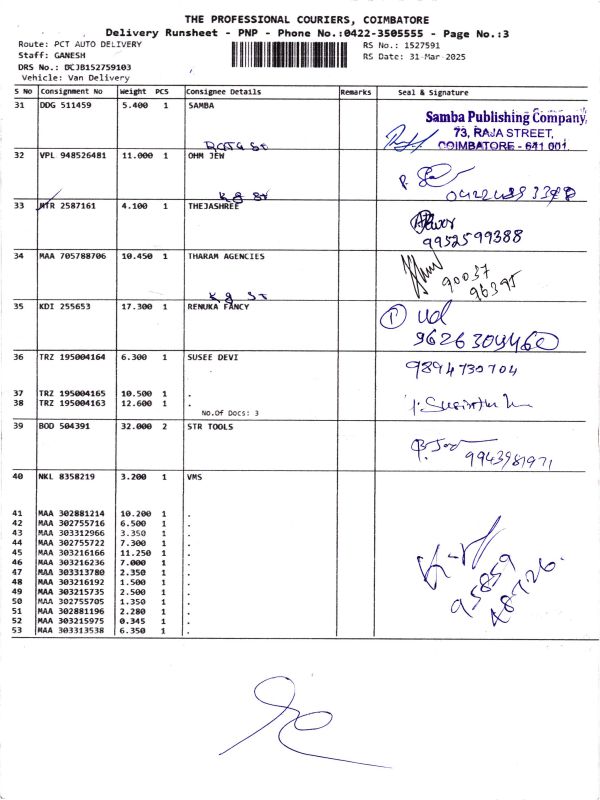 THE PROFESSIONAL COURIERS, COIMBATORE
Delivery Runsheet - PNP - Phone No.:0422-3505555 - Page No.:3
Route: PCT AUTO DELIVERY
RS No.: 1527591
Staff: GANESH
RS Date: 31-Mar-2025
DRS No.: DCJB152759103
Vehicle: Van Delivery
S No Consignment No Weight PCS Consignee Details Remarks Seal & Signature
31 DDG 511459 5.400 1 SAMBA
Samba Publishing Company,
73, RAJA STREET,
COIMBATORE - 641 001.
32 VPL 948526481 11.000 1 OHM JEW
K g St
33 MTR 2587161 4.100 1 THEJASHREE
9952599388
34 MAA 705788706 10.450 1 THARAM AGENCIES
90037
96395
K g St
35 KDI 255653 17.300 1 RENUKA FANCY
9626309460
36 TRZ 195004164 6.300 1 SUSEE DEVI
9894730704
37 TRZ 195004165 10.500 1 .
38 TRZ 195004163 12.600 1 .
No.Of Docs: 3
39 BOD 504391 32.000 2 STR TOOLS
9943981971
40 NKL 8358219 3.200 1 VMS
41 MAA 302881214 10.200 1 .
42 MAA 302755716 6.500 1 .
43 MAA 303312966 3.350 1 .
44 MAA 302755722 7.300 1 .
45 MAA 303216166 11.250 1 .
46 MAA 303216236 7.000 1 .
47 MAA 303313780 2.350 1 .
48 MAA 303216192 1.500 1 .
49 MAA 303215735 2.500 1 .
50 MAA 302755705 1.350 1 .
51 MAA 302881196 2.280 1 .
52 MAA 303215975 0.345 1 .
53 MAA 303313538 6.350 1 .
95859
48726.